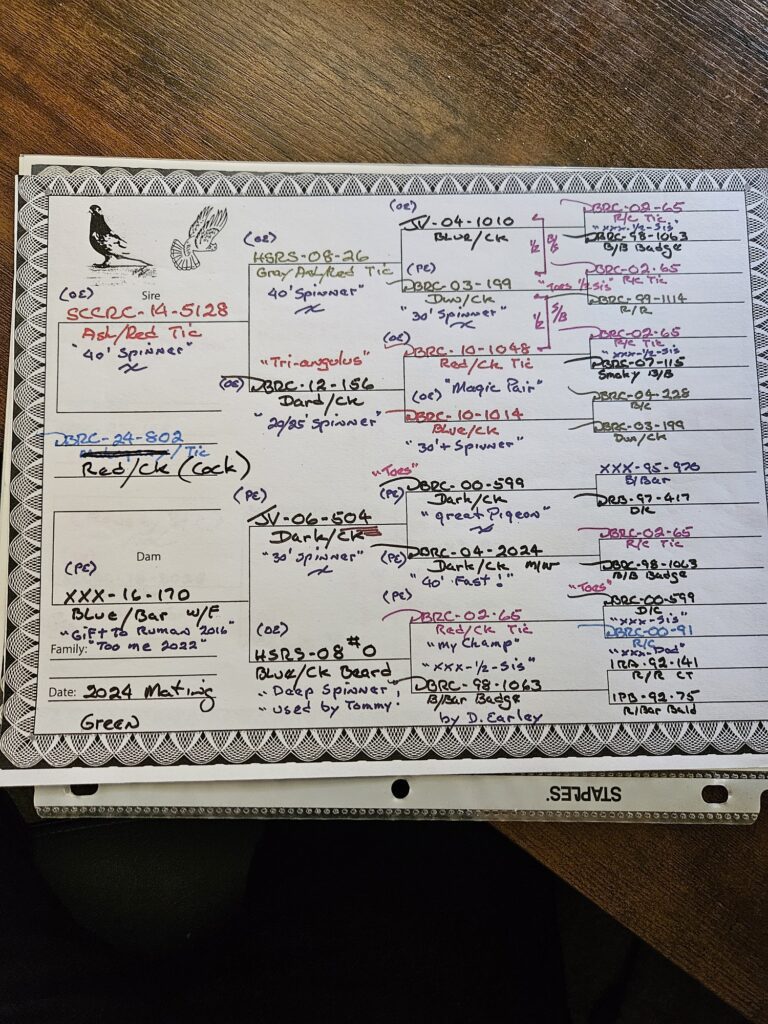 (OE)
Sire
SCCRC-14-5128
Ash/Red Tic
"40' Spinner"
DBRC-24-802
/ Tic
Red/Ck (Cock)
Dam
(PE)
XXX-16-170
Blue/Bar W/F
"Gift To Ruman 2016"
Family: "Too me 2022"
Date: 2024 Mating
Green
(OE)
HSRS-08-26
Gray Ash/Red Tic
"40' Spinner"
"Tri-angulus"
(OE) DBRC-12-156
Dard/Ck
"20/25' Spinner"
(PE)
JV-06-504
Dark/Ck
"30' Spinner"
(OE)
HSRS-08#0
Blue/Ck Beard
"Deep Spinner,
"used by Tommy!
(OE)
JV-04-1010
Blue/Ck
(PE)
DBRC-03-199
Dun/Ck
"30' Spinner"
(OE)
DBRC-10-1048
Red/Ck Tic
(OE) "Magic Pair"
DBRC-10-1014
Blue/Ck
"30'+ Spinner"
"Toes"
(PE) DBRC-00-599
Dark/Ck
"great Pigeon"
(PE) DBRC-04-2024
Dark/Ck
"40' Fast!"
(PE)
DBRC-02-65
Red/Ck Tic
"my Champ"
"xxx-1/2-Sis"
DBRC-98-1063
B/Bar Badge
by D. Earley
1/2 B/S
1/2 S/B
DBRC-02-65
R/C Tic
"xxx-1/2-Sis"
DBRC-98-1063
B/B Badge
DBRC-02-65
"Toes 1/2 Sis" R/C Tic
DBRC-99-1114
R/R
DBRC-02-65
R/C Tic
"xxx-1/2-Sis"
DBRC-07-115
Smoky B/B
DBRC-04-228
B/C
DBRC-03-199
Dun/Ck
XXX-95-970
B/Bar
DRB-97-417
D/C
DBRC-02-65
R/C Tic
DBRC-98-1063
B/B Badge
"Toes"
DBRC-00-599
D/C
"xxx-Sis"
DBRC-00-91
R/C
"xxx-Dad"
IRA-92-141
R/R CT
IPB-92-75
R/Bar Bald
STAPLES